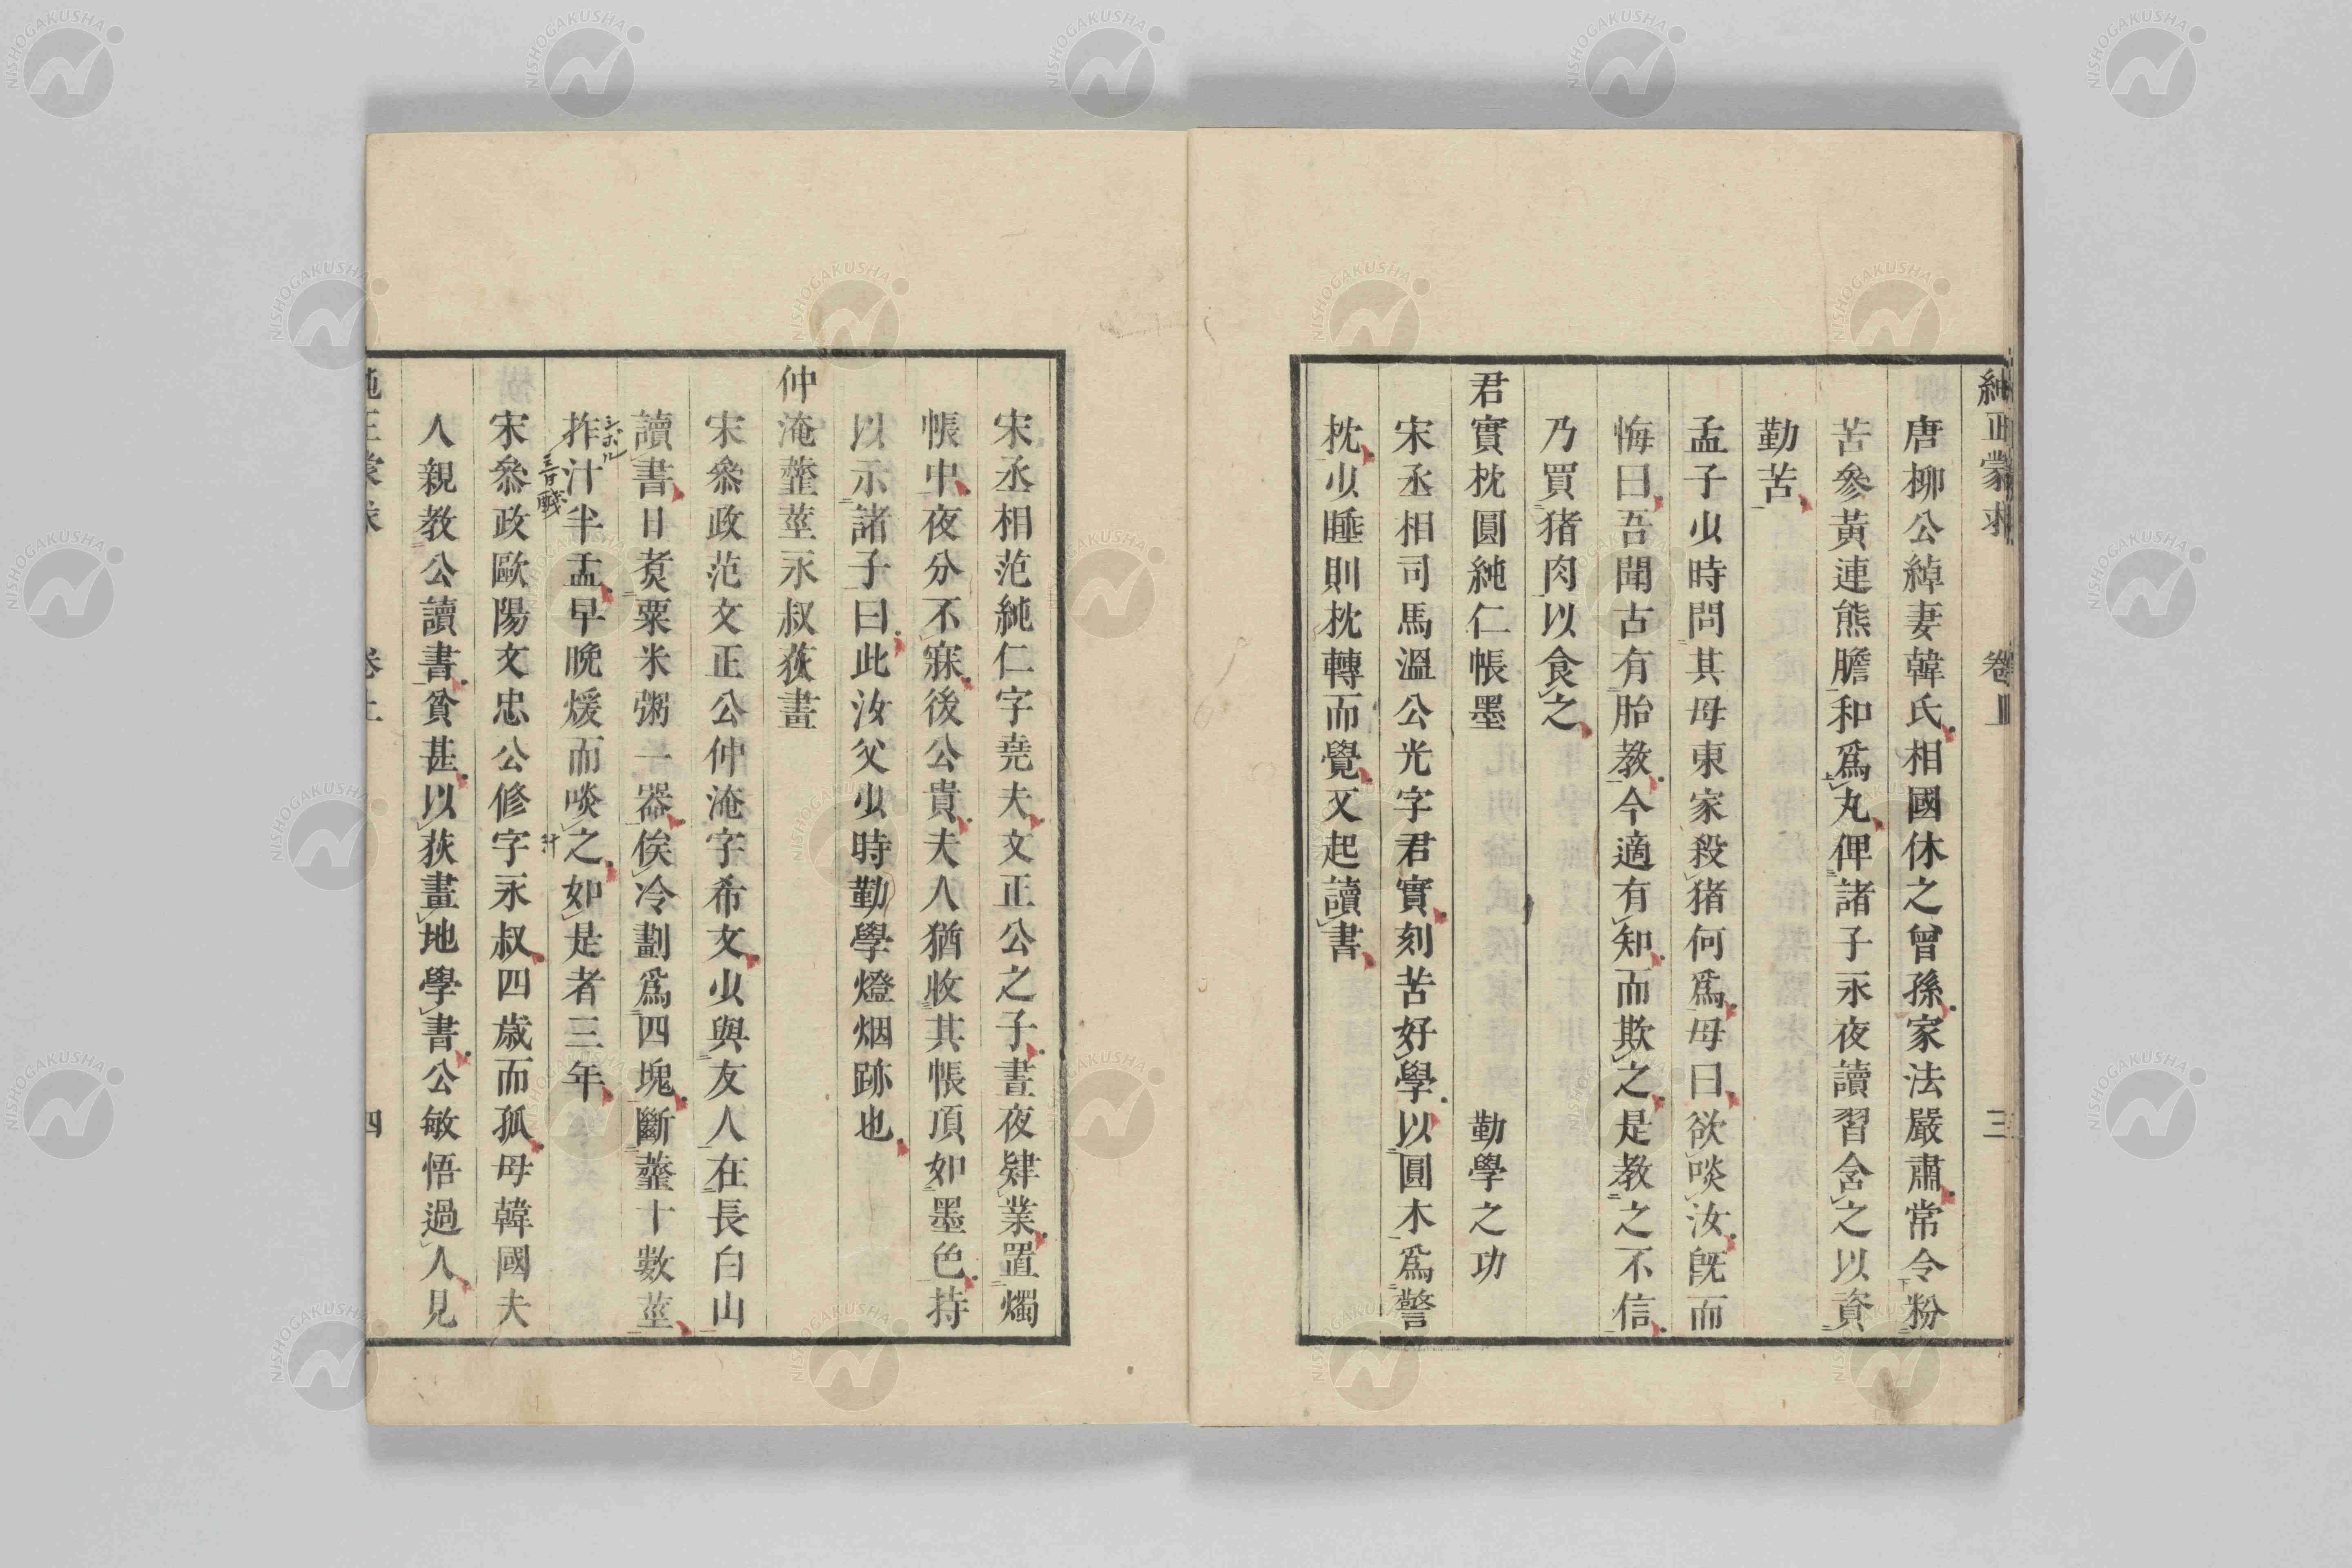 純正蒙求 卷上 三
唐柳公綽妻韓氏相國休之曾孫家法嚴肅常令粉
苦參黃連熊膽和爲丸俾諸子永夜讀習含之以資
勤苦
孟子少時問其母東家殺猪何爲母曰欲啖汝旣而
悔曰吾聞古有胎教今適有知而欺之是教之不信
乃買猪肉以食之
君實枕圓純仁帳墨 勤學之功
宋丞相司馬溫公光字君實刻苦好學以圓木爲警
枕少睡則枕轉而覺又起讀書
宋丞相范純仁字堯夫文正公之子晝夜肄業置燭
帳中夜分不寐後公貴夫人猶收其帳頂如墨色持
以示諸子曰此汝父少時勤學燈烟跡也
仲淹虀莖永叔荻畫
宋叅政范文正公仲淹字希文少與友人在長白山
讀書日煑粟米粥一器俟冷劃爲四塊斷虀十數莖
拃汁半盂早晚煖而啖之如是者三年
シホル
汁
宋叅政歐陽文忠公修字永叔四歲而孤母韓國夫
人親教公讀書貧甚以荻畫地學書公敏悟過人見
純正蒙求 卷上 四
NISHOGAKUSHA